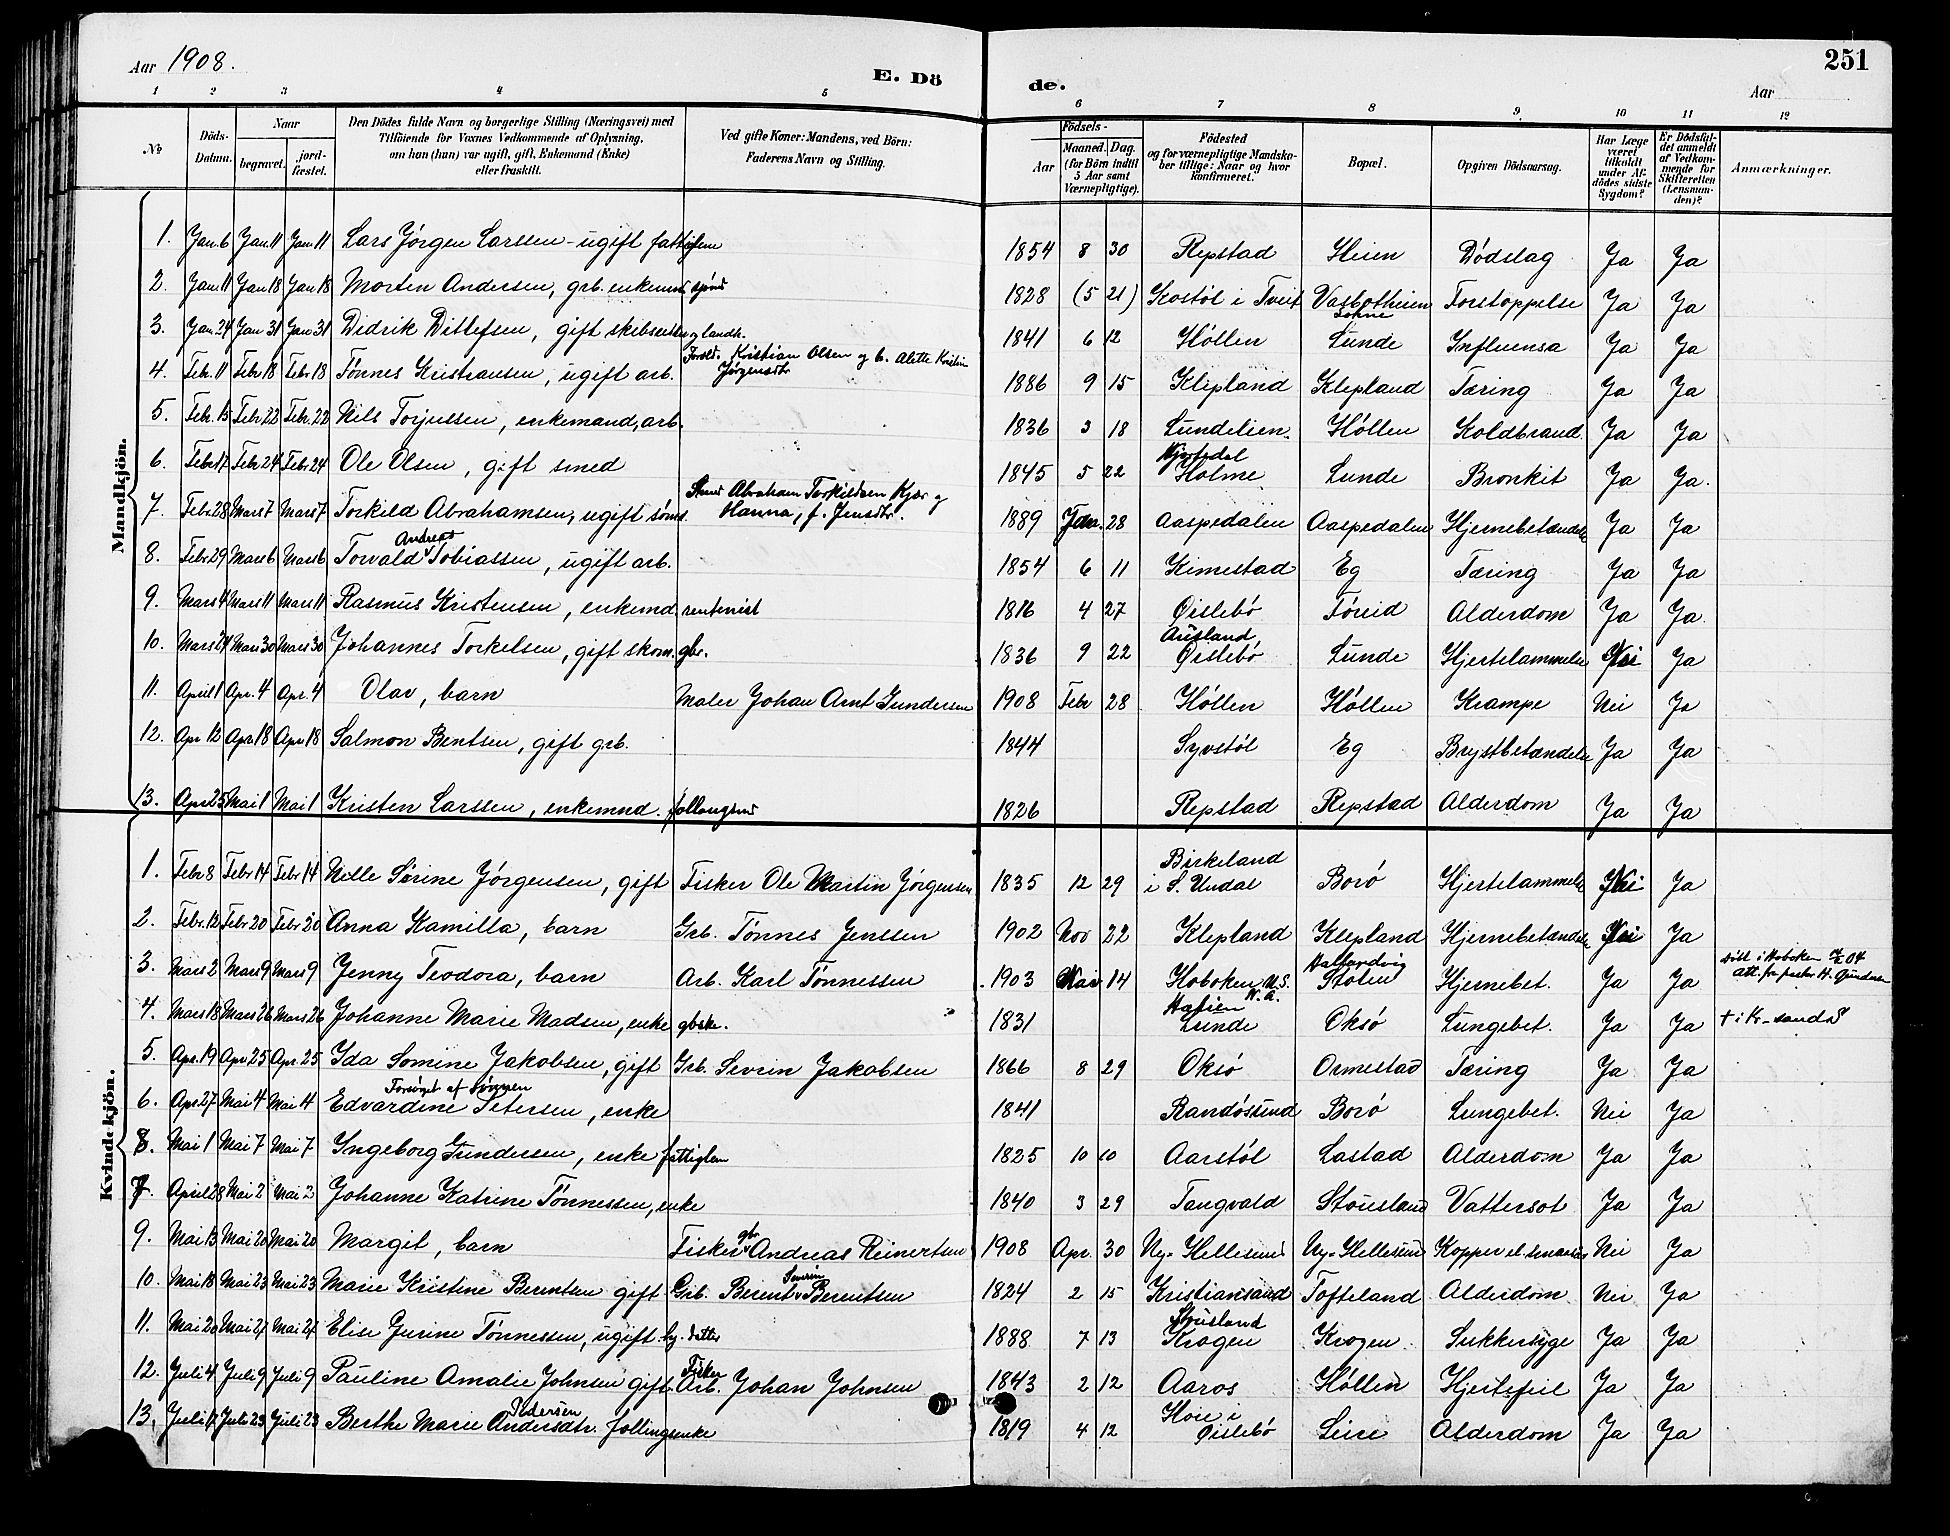 Aar 1908.
E. Dö
de.
Aar
251
1 2 3 4 5 6 7 8 9 10 11 12
No
Döds-Datum.
Naar
begravet.
jord-fæstet.
Den Dödes fulde Navn og borgerlige Stilling (Næringsvei) med
Tilföiende for Voxnes Vedkommende af Oplysning,
om han (hun) var ugift, gift, Enkemand (Enke)
eller fraskilt.
Ved gifte Koner: Mandens, ved Börn:
Faderens Navn og Stilling.
Födsels-
Aar
Maaned. Dag.
(for Börn indtil
5 Aar samt
Værnepligtige).
Födested
og for værnepligtige Mandska-
ber tillige: Naar og hvor
konfirmeret.
Bopæl.
Opgiven Dödsaarsag.
Har Læge
været
tilkaldt
under Af-
dödes sidste
Sygdom?
Er Dödsfal-
det anmeldt
af Vedkom-
mende for
Skifteretten
(Lensman-
den)?
Anmærkninger.
Mandkjön.
1. Jan. 6 Jan 11 Jan 11 Lars Jörgen Larssen - ugift fattiglem 1854 8 30 Repstad Heien Dödslag Ja Ja
2. Jan 11 Jan 18 Jan 18 Morten Andersen, grb. enkemnd 1828 (5 21) Kostöl i Tveit Vasbotheien Forstoppelse Ja Ja
Söhne
3. Jan 24 Jan 31 Jan 31 Didrik Ditlefsen, gift og landh. 1841 6 12 Höllen Lunde Influensa Ja Ja
Forold. Kristian Olsen og h. Alette Kristin
4. Feb. 11 Febr 18 Febr 18 Tönnes Kristiansen, ugift arb. Jörgensdtr 1886 9 15 Klepland Klepland Tæring Ja Ja
5. Febr. 15 Febr 22 Febr. 22 Nils Torjussen, enkemand, arb. 1836 3 18 Lundelien Höllen Koldbrand Ja Ja
6. Febr 17 Febr 24 Febr 24 Ole Olsen, gift smed 1845 5 22 Holme Lunde Bronkit Ja Ja.
Abraham Torkildsen Kjær og
7. Febr. 28 Mars 7 Mars 7 Torkild Abrahamsen, ugift sömd. Hanna, f. Jensdtr. 1889 Jan. 28 Aaspedalen Aaspedalen Hjernebetændelse Ja Ja
Andreas
8. Febr. 29 Mars 6 Mars 6 Torvald Tobiassen, ugift arb. 1854 6 11 Kimestad Eg Tæring Ja Ja
9. Mars 4 Mars 11 Mars 11 Rasmus Kristensen, enkemd. rentenist 1816 4 27 Öislebö Föreid Alderdom Ja Ja.
Ausland,
10. Mars 24 Mars 30 Mars 30 Johannes Torkelsen, gift skom. gbr. 1836 9 22 Öislebö Lunde Hjertelammelse Nei Ja
11. April 1 Apr. 4 Apr. 4 Olav, barn Maler Johan Arnt Gundersen 1908 Febr 28 Höllen Höllen Krampe Nei Ja
12. Apr 12 Apr 18 Apr 18 Salmon Bentsen, gift grb. 1844 Syvstöl Eg Brystbetændelse Ja Ja
13. Apr 25 Mai 1 Mai 1 Kristen Larssen, enkemnd. 1826 Repstad Repstad Alderdom Ja Ja
Kvindekjön.
Birkeland
1. Febr 8 Febr 14 Febr 14 Nille Sörine Jörgensen, gift Fisker Ole Martin Jörgensen 1835 12 29 i S. Undal Borö Hjertelammelse Nei Ja
2. Febr. 12 Febr 20 Febr 20 Anna Kamilla, barn Grb. Tönnes Jenssen 1902 Nov 22 Klepland Klepland Hjernebetændelse Nei Ja
död i Hoboken 04
Att. fra pastor H. Gundersen
3. Mars 2 Mars 9 Mars 9 Jenny Teodora, barn Arb. Karl Tönnessen 1903 14 Hoboken U.S. Stölen Hjernebet. Ja Ja
N.A.
4. Mars 18 Mars 26 Mars 26 Johanne Marie Madsen, enke gbske. 1831 Lunde Oksö Lungebet. Ja Ja † i Kr-sand S
5. Apr. 19 Apr 25 Apr. 25 Ida Somine Jakobsen, gift Grb. Sevrin Jakobsen 1866 8 29 Oksö Ormestad Tæring Ja Ja
Forsörget af sönnen
6. Apr 27 Mai 4 Mai 4 Edvardine Petersen, enke 1841 Randösund Borö Lungebet. Nei Ja
8. Mai 1 Mai 7 Mai 7 Ingeborg Gundersen, enke fattiglem 1825 10 10 Aarstöl Lastad Alderdom Ja Ja
7. April 28 Mai 2 Mai 2 Johanne Katrine Tönnessen, enke 1840 3 29 Tangvald Stousland Vattersot Ja Ja
gbr
9. Mai 13 Mai 20 Mai 20 Margit, barn Fisker Andreas Reinertsen 1908 Apr. 30 Ny-Hellesund Ny-Hellesund Nei Ja
Severin
10. Mai 18 Mai 23 Mai 23 Marie Kristine Berentsen gift Grb. Berent Berentsen 1824 2 15 Kristiansand Tofteland Alderdom Nei Ja
Stusland
11. Mai 20 Mai 27 Mai 27 Elise Gurine Tönnessen, ugift datter 1888 7 13 Krogen Krogen Sukkersyge Ja Ja
Fisker
12. Juli 4 Juli 9 Juli 9 Pauline Amalie Johnsen gift Arb. Johan Johnsen 1843 2 12 Aaros Höllen Hjertefeil Ja Ja
Pedersen Hoie i
13. Juli 17 Juli 23 Juli 23 Berthe Marie Andersdtr. follingsenke 1819 4 12 Öislebö Leire Alderdom Ja Ja